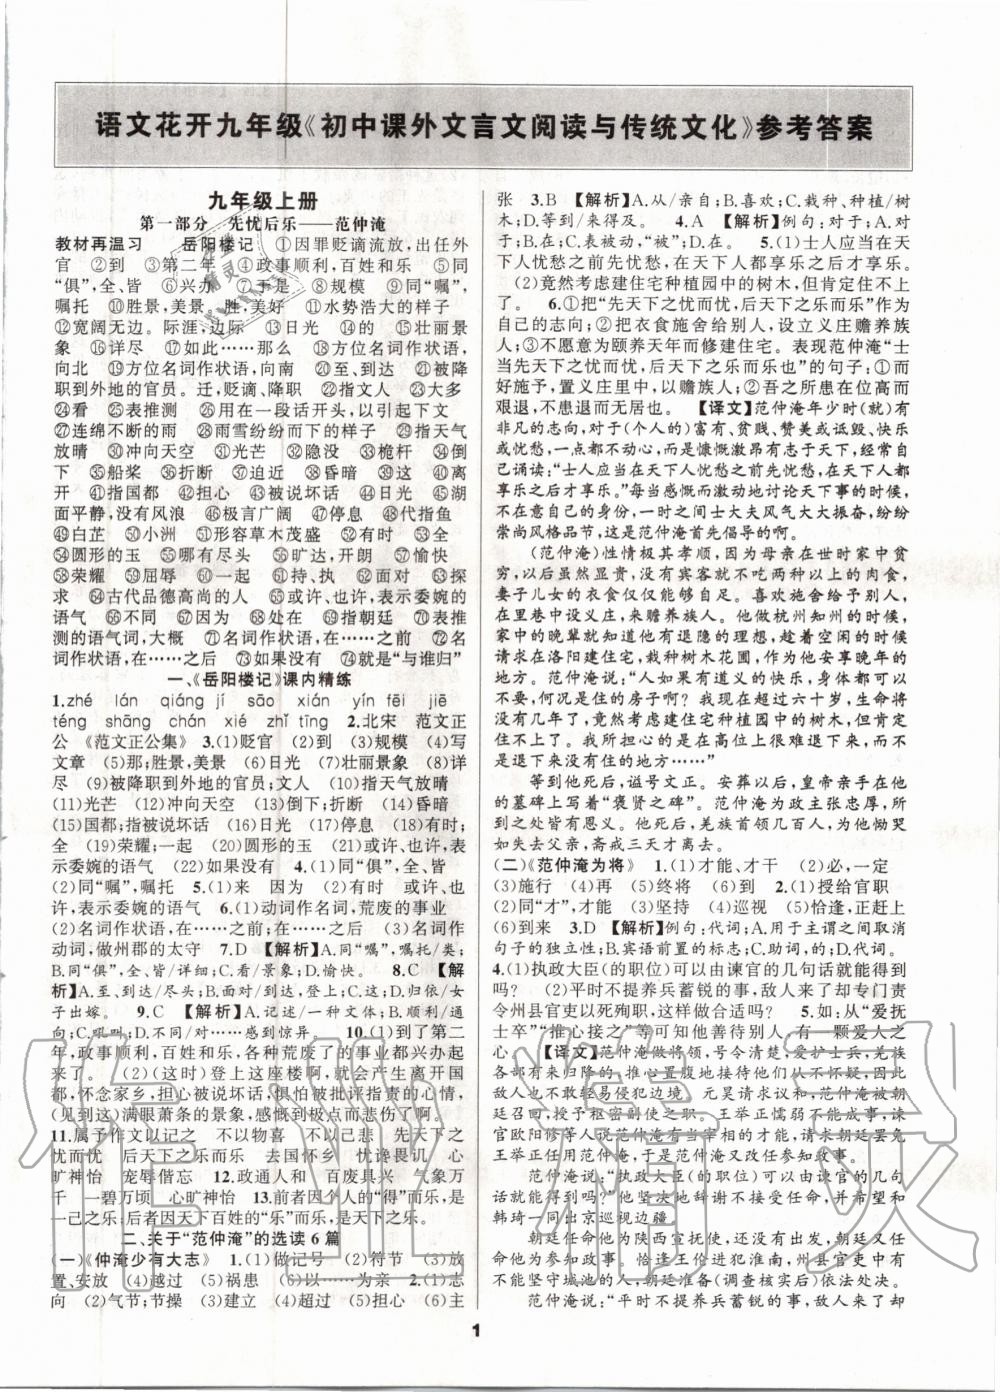 语文花开九年级《初中课外文言文阅读与传统文化》参考答案
九年级上册
第一部分　先忧后乐——范仲淹
教材再温习　岳阳楼记　①因罪贬谪流放，出任外
官　②到　③第二年　④政事顺利，百姓和乐　⑤同
“俱”，全、皆　⑥兴办　⑦于是　⑧规模　⑨同“嘱”，
嘱托　⑩胜景，美景　胜，美好　⑪水势浩大的样子
⑫宽阔无边。际涯，边际　⑬日光　⑭的　⑮壮丽景
象　⑯详尽　⑰如此……那么　⑱方位名词作状语，
向北　⑲方位名词作状语，向南　⑳至、到达　㉑被降
职到外地的官员。迁，贬谪、降职　㉒指文人　㉓大多
㉔看　㉕表推测　㉖用在一段话开头，以引起下文
㉗连绵不断的雨　㉘雨雪纷纷而下的样子　㉙指天气
放晴　㉚冲向天空　㉛光芒　㉜隐没　㉝桅杆　㉞倒
下　㉟船桨　㊱折断　㊲迫近　㊳昏暗　㊴这　㊵离
开　㊶指国都　㊷担心　㊸被说坏话　㊹日光　㊺湖
面平静，没有风浪　㊻极言广阔　㊼停息　㊽代指鱼
㊾白芷　㊿小洲　51形容草木茂盛　52有时　53全
54圆形的玉　55哪有尽头　56旷达，开朗　57愉快
58荣耀　59屈辱　60一起　61持、执　62面对　63探
求　64古代品德高尚的人　65或许、也许，表示委婉的
语气　66不同　67因为　68处在　69指朝廷　70表推
测的语气词，大概　71名词作状语，在……之前　72名
词作状语，在……之后　73如果没有　74就是“与谁归”
一、《岳阳楼记》课内精练
1.zhé　lán　qiáng jí　sāo　xián　yín fēi　jiē
téng shāng chán　xié　zhǐ tīng　2.北宋　范文正
公　《范文正公集》　3.(1)贬官　(2)到　(3)规模　(4)写
文章　(5)那；胜景，美景　(6)日光　(7)壮丽景象　(8)详
尽　(9)被降职到外地的官员；文人　(10)指天气放晴
(11)光芒　(12)冲向天空　(13)倒下；折断　(14)昏暗
(15)国都；指被说坏话　(16)日光　(17)停息　(18)有时；
全　(19)荣耀；一起　(20)圆形的玉　(21)或许、也许，表
示委婉的语气　(22)如果没有　4.(1)同“俱”，全、皆
(2)同“嘱”，嘱托　5.(1)来　因为　(2)有时　或许、也
许，表示委婉的语气　6.(1)动词作名词，荒废的事业
(2)名词作状语，在……之前；在……之后　(3)名词作
动词，做州郡的太守　7.D　【解析】A.同“嘱”，嘱托/类；
B.同“俱”，全、皆/详细；C.看/景象；D.愉快。　8.C　【解
析】A.至、到达/尽头；B.面对/登上；C.这/此；D.归依/女
子出嫁。　9.C　【解析】A.记述/一种文体；B.顺利/通
向；C.吼叫；D.不同/对……感到惊异。　10.(1)到了第二
年，政事顺利，百姓和乐，各种荒废了的事业都兴办起
来了。　(2)(这时)登上这座楼啊，就会产生离开国
都，怀念家乡，担心被说坏话，惧怕被批评指责的心情，
(见到这)满眼萧条的景象，感慨到了极点而悲伤了啊。
11.属予作文以记之　不以物喜　不以己悲　先天下之
忧而忧　后天下之乐而乐　去国怀乡　忧谗畏讥　心
旷神怡　宠辱偕忘　12.政通人和　百废具兴　气象万
千　一碧万顷　心旷神怡　13.前者因个人的“得”而乐，是
一己之乐；后者因天下百姓的“乐”而乐，是天下之乐。
二、关于“范仲淹”的选读6篇
(一)《仲淹少有大志》　1.(1)做记号　(2)符节　(3)放
置、安放　(4)越过　(5)祸患　(6)以……为亲　2.(1)志
向　(2)气节；节操　(3)建立　(4)超过　(5)超过　(6)主
张　3.B　【解析】A.从/亲自；B.喜欢；C.栽种，种植/树
木；D.等到/来得及。　4.A　【解析】例句：对于；A.对
于；B.在；C.表被动，“被”；D.在。　5.(1)士人应当在天
下人忧愁之前先忧愁，在天下人都享乐之后才享乐。
(2)竟然考虑建住宅种植园中的树木，有人住，也有人
　6.①把“先天下之忧而忧，后天下之乐而乐”作为
自己的志向；②把衣食施舍给别人，设立义庄赡养族
人；③不愿意为颐养天年而修建住宅。表现范仲淹“士
当先天下之忧而忧，后天下之乐而乐也”的句子：①而
好施予，置义庄里中，以赡族人；②吾之所患在位高而
艰退，不患退而无居也。　【译文】范仲淹年少时(就)有
非凡的志向，对于(个人的)富有、贫贱、赞美或诋毁、快乐
或忧愁，一点都不动心，而是慷慨激昂有志在天下，经常
自己诵读：“士人应当在天下人忧愁之前先忧愁，在天下人
都享乐之后才享乐。”每当感慨而激动地讨论天下事的时候，
不在意自己的身份，一时间士大夫风气大大振奋，纷纷
崇尚风格品节，这是范仲淹首先倡导的啊。
(范仲淹)性情极其孝顺，因为母亲在世时家中贫
穷，以后虽然显贵，没有宾客就不吃两种以上的肉食，
妻子儿女的衣食仅仅能够充足。喜欢施舍给予别人，
在里巷中设立义庄，来赡养族人。他做杭州知州的时候，
家中的晚辈就知道他有退隐的理想，趁着空闲的时候
请求在洛阳建住宅，栽种树木花圃，把它作为安享晚年的
地方。范仲淹说：“人如果有道义的快乐，身体都可以
不顾，何况是住的房子呢？我现在超过六十岁，生命将
没有几年了，竟然考虑建住宅种植园中的树木，但何时
住进去呢？我所担心的是在高位上很难退下来，而不
是退下来没有住的地方……”
等到他死后，谥号文正。安葬以后，皇帝亲手在他
的墓碑上写为“褒贤之碑”。范仲淹为政主张忠厚，所
到之处皆有恩义。他死后，羌族首领几百人，为他恸哭
如失去父亲，斋戒三天才离去。
(二)《范仲淹为将》　1.(1)才能、才干　(2)必，一定
(3)施行　(4)再　(5)终将　(6)到　2.(1)授给官职
(2)同“才”，才能　(3)坚持　(4)巡视　(5)恰逢，正赶上
(6)到来　3.D　【解析】例句：代词；A.用于主谓之间取消
句子的独立性；B.宾语前置的标志；C.助词，的；D.代词。
4.(1)执政大臣(的职位)可以由谏官的几句话就能得到吗？
(2)平时不提养兵蓄锐的事，敌人来了却专门责
令州县官吏以死殉职，这样做合适吗？　5.如：从“爱抚
士卒”“推心接之”等可以看出他善待别人，有一颗爱人之
心。　【译文】范仲淹做将领，号令清楚，爱护士兵，羌族各
部有来归降的，推心置腹地接待他们不怀疑，因此敌
人不敢轻易侵犯边境。元昊请求议和，范仲淹被朝
廷召回，授予枢密副使之职。王举正懦弱不能成事，谏
官欧阳修等人说范仲淹有当宰相的才能，请求朝廷罢免
王举正任用范仲淹，于是范仲淹又改任参知政事。
范仲淹说：“执政大臣(的职位)可以由谏官的几句
话就能得到吗？”他坚决地辞谢不接受任命，并希望和
韩琦一同出京巡视边疆。
朝廷任命他为陕西宣抚使，还没有出发，朝廷又任
命他为参知政事。恰逢王伦进犯淮南，州县官吏中有不
能坚守城池的人，朝廷准备(调查实行后)依法处决。
范仲淹说：“平时不提养兵蓄锐的事，敌人来了却
1